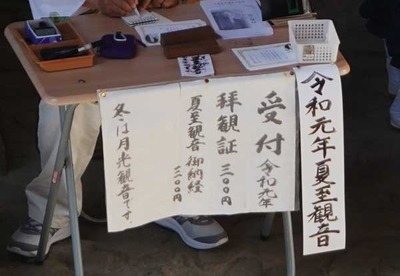 令和元年夏至観音
受付 令和元年
拝観証 三〇〇円
夏至観音御納経 三〇〇円
冬は月光観音です。